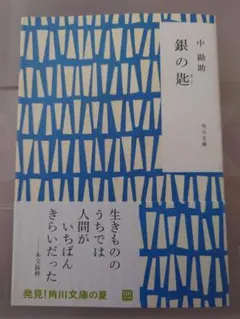 中 勘助
銀の匙
角川文庫
生きものの
うちでは
人間が
いちばん
きらいだった
――本文抜粋
発見!角川文庫の夏